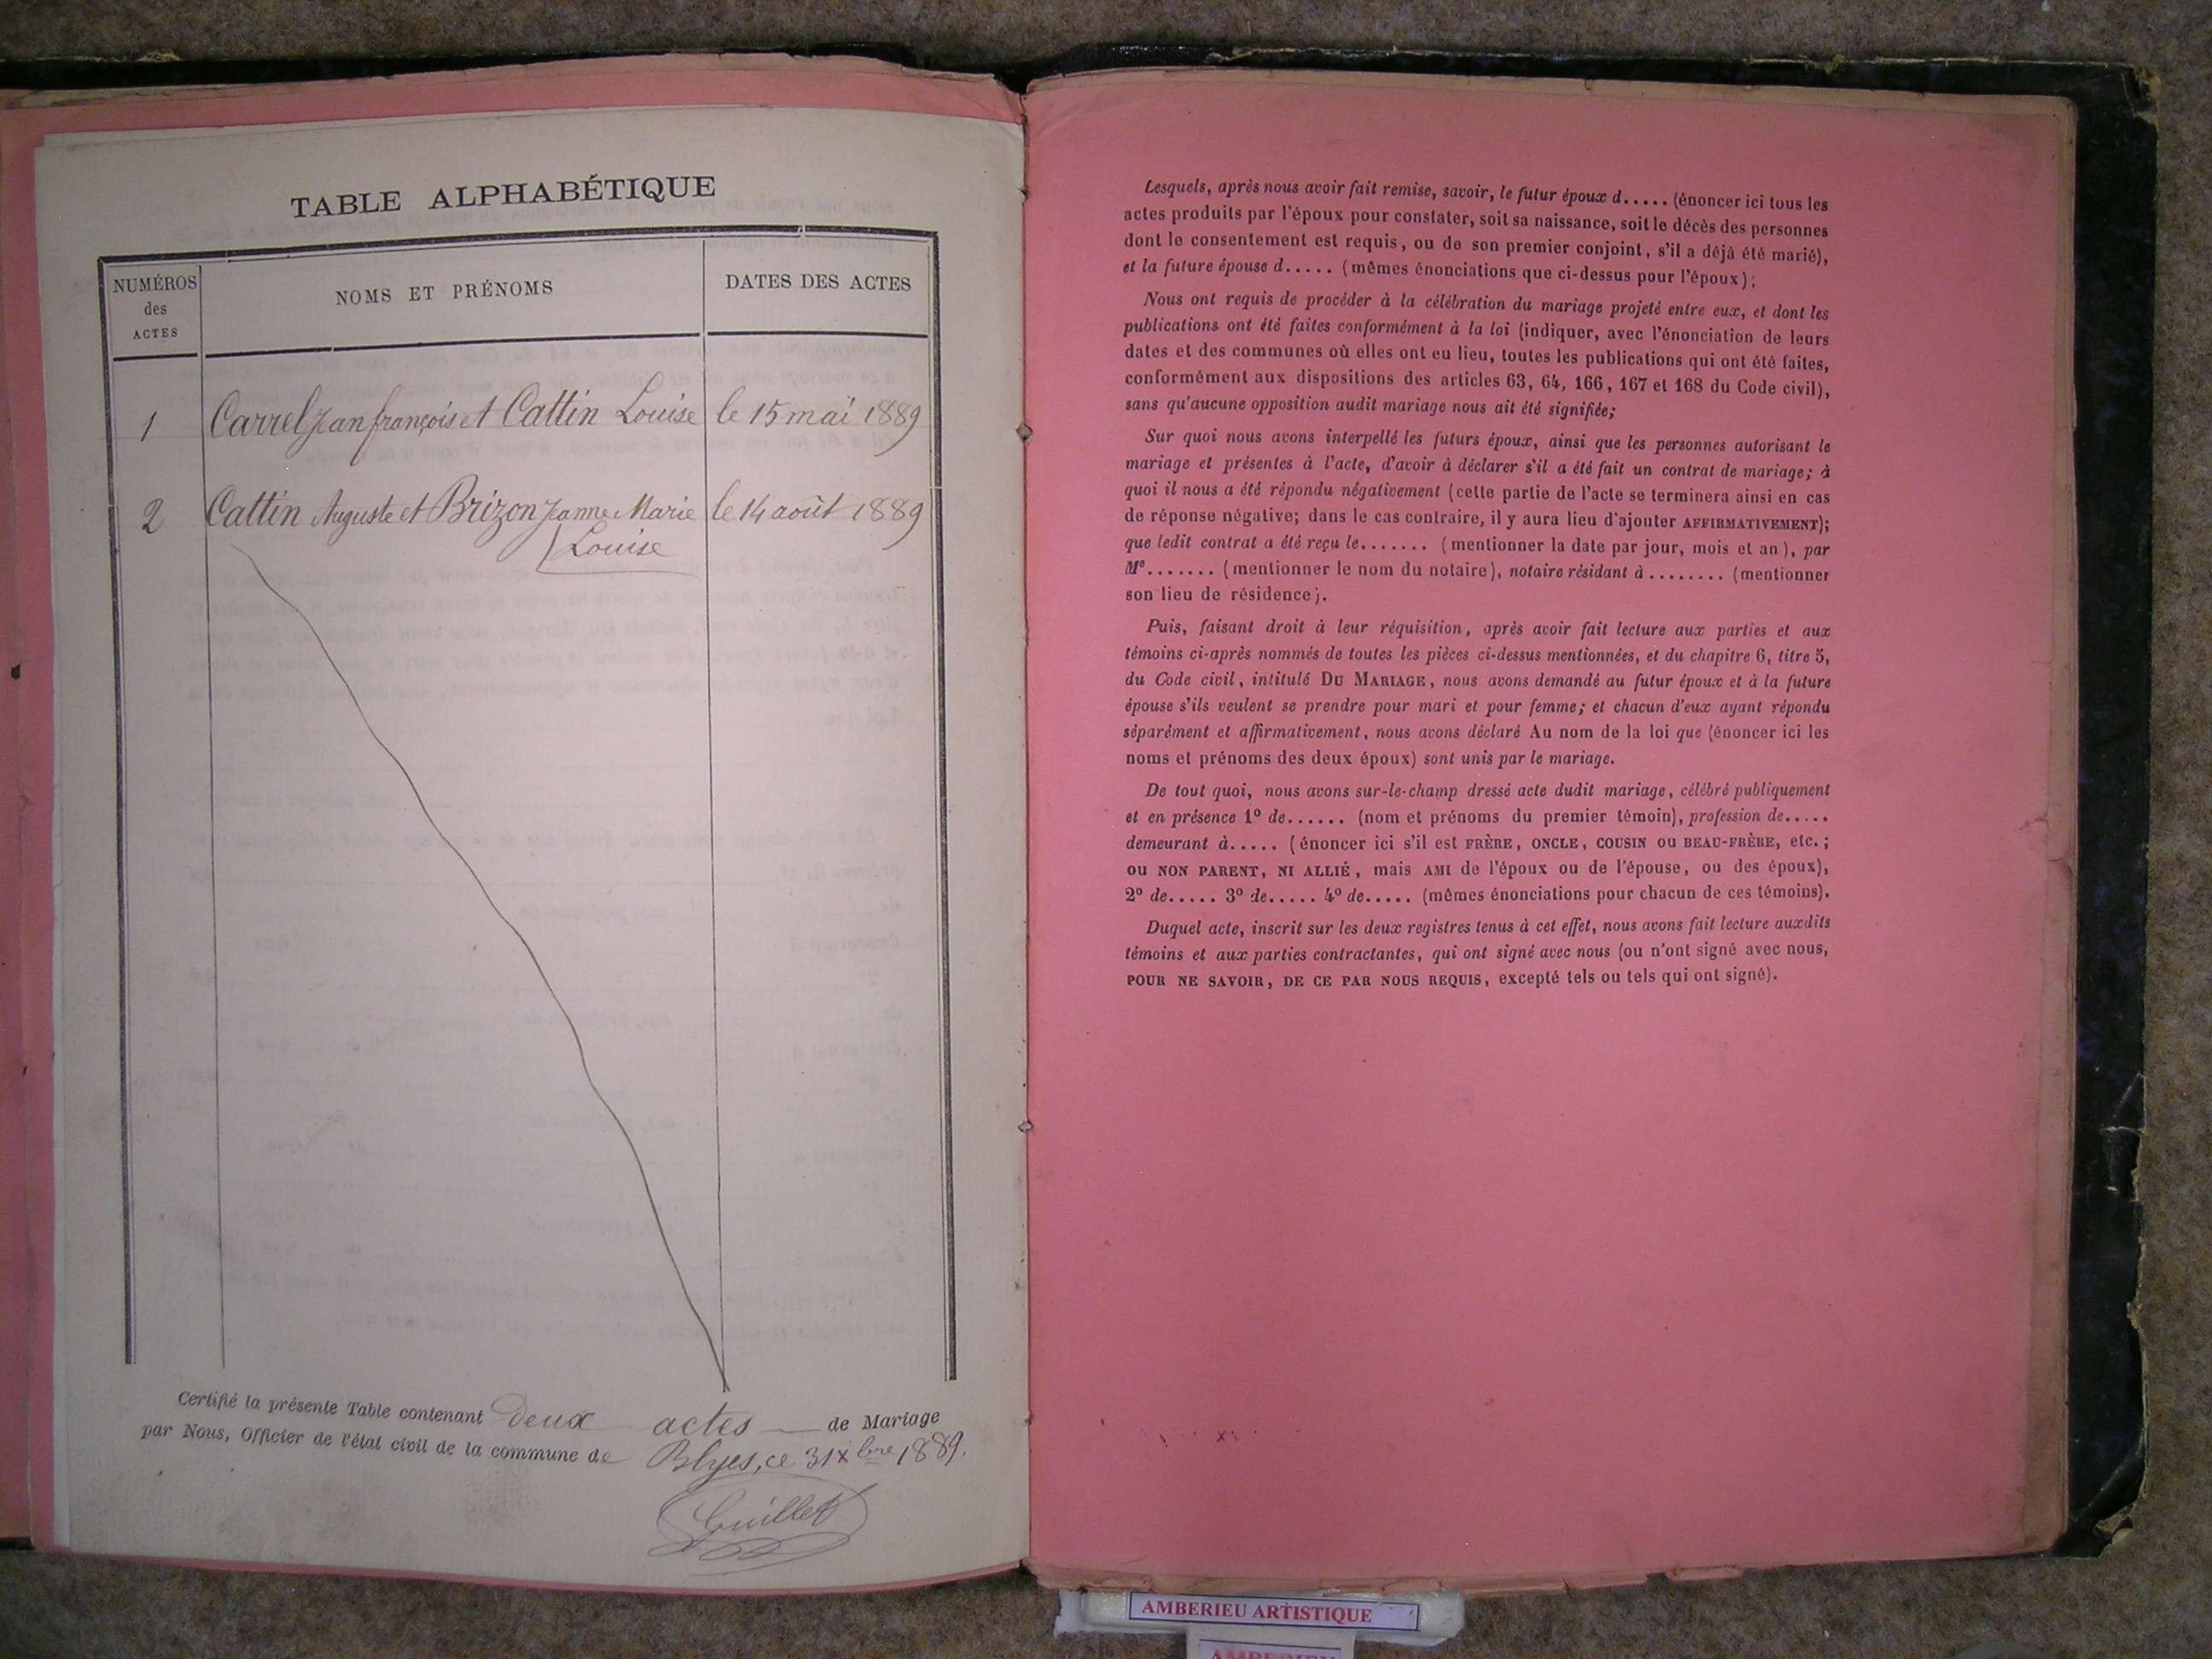 TABLE ALPHABÉTIQUE
NUMÉROS
des
ACTES
NOMS ET PRÉNOMS
DATES DES ACTES
1 Carrel Jean françois et Cattin Louise le 15 mai 1889
2 Cattin Auguste et Brizon Jeanne Marie le 14 août 1889
Louise
Certifié la présente Table contenant deux actes de Mariage
par Nous, Officier de l'état civil de la commune de Blyes, ce 31 xbre 1889.
Guillet
Lesquels, après nous avoir fait remise, savoir, le futur époux d..... (énoncer ici tous les
actes produits par l'époux pour constater, soit sa naissance, soit le décès des personnes
dont le consentement est requis, ou de son premier conjoint, s'il a déjà été marié),
et la future épouse d..... (mêmes énonciations que ci-dessus pour l'époux);
Nous ont requis de procéder à la célébration du mariage projeté entre eux, et dont les
publications ont été faites conformément à la loi (indiquer, avec l'énonciation de leurs
dates et des communes où elles ont eu lieu, toutes les publications qui ont été faites,
conformément aux dispositions des articles 63, 64, 166, 167 et 168 du Code civil),
sans qu'aucune opposition audit mariage nous ait été signifiée;
Sur quoi nous avons interpellé les futurs époux, ainsi que les personnes autorisant le
mariage et présentes à l'acte, d'avoir à déclarer s'il a été fait un contrat de mariage; à
quoi il nous a été répondu négativement (cette partie de l'acte se terminera ainsi en cas
de réponse négative; dans le cas contraire, il y aura lieu d'ajouter AFFIRMATIVEMENT);
que ledit contrat a été reçu le....... (mentionner la date par jour, mois et an), par
Me....... (mentionner le nom du notaire), notaire résidant à ........ (mentionner
son lieu de résidence).
Puis, faisant droit à leur réquisition, après avoir fait lecture aux parties et aux
témoins ci-après nommés de toutes les pièces ci-dessus mentionnées, et du chapitre 6, titre 5,
du Code civil, intitulé DU MARIAGE, nous avons demandé au futur époux et à la future
épouse s'ils veulent se prendre pour mari et pour femme; et chacun d'eux ayant répondu
séparément et affirmativement, nous avons déclaré Au nom de la loi que (énoncer ici les
noms et prénoms des deux époux) sont unis par le mariage.
De tout quoi, nous avons sur-le-champ dressé acte dudit mariage, célébré publiquement
et en présence 1º de...... (nom et prénoms du premier témoin), profession de.....
demeurant à..... (énoncer ici s'il est FRÈRE, ONCLE, COUSIN OU BEAU-FRÈRE, etc.;
OU NON PARENT, NI ALLIÉ, mais AMI de l'époux ou de l'épouse, ou des époux),
2º de..... 3º de..... 4º de..... (mêmes énonciations pour chacun de ces témoins).
Duquel acte, inscrit sur les deux registres tenus à cet effet, nous avons fait lecture auxdits
témoins et aux parties contractantes, qui ont signé avec nous (ou n'ont signé avec nous,
POUR NE SAVOIR, DE CE PAR NOUS REQUIS, excepté tels ou tels qui ont signé).
AMBERIEU ARTISTIQUE
AMBERIEU